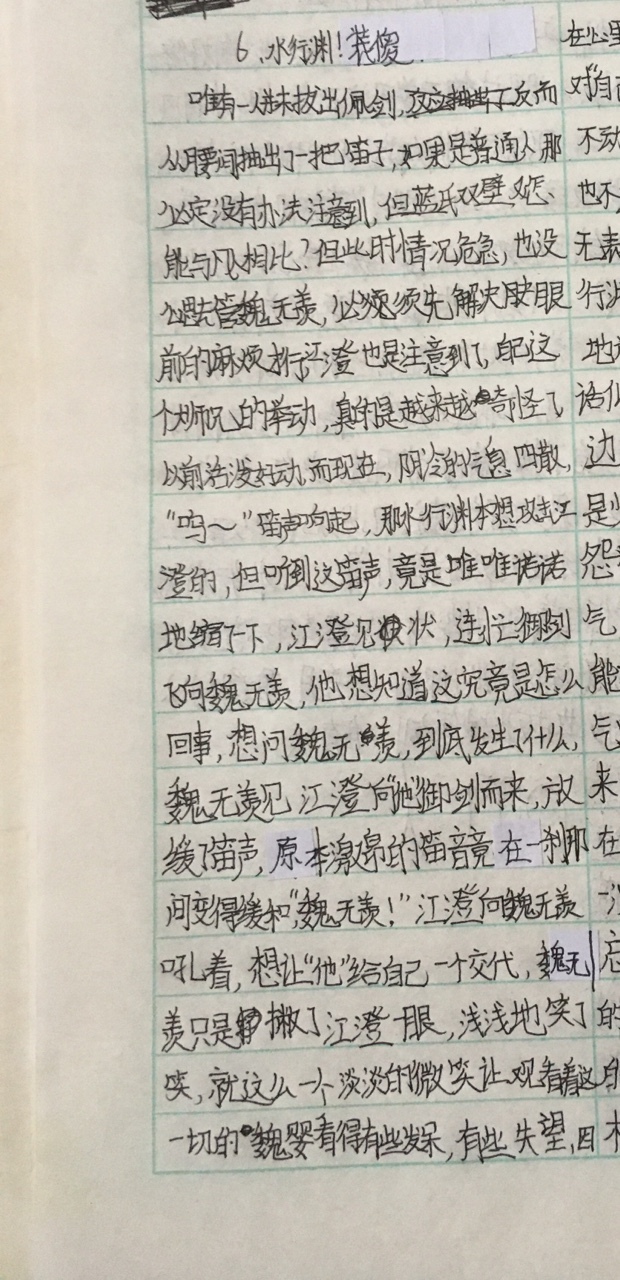 6、水行渊！装傻.
唯有一人未拔出佩剑,反而
从腰间抽出了一把笛子,如果是普通人那
必定没有办法注意到,但蓝氏双壁又怎、
能与凡人相比？但此时情况危急,也没
心思去管魏无羡,必须须先解决眼
前的麻烦才行江澄也是注意到了,自己这
个大师兄的举动,真的是越来越奇怪了
以前活泼好动,而现在,阴冷的气息四散,
“呜～”笛声响起,那水行渊本想攻击江
澄的,但听到这笛声,竟是唯唯诺诺
地缩了一下,江澄见状,连忙御剑
飞向魏无羡,他想知道这究竟是怎么
回事,想问魏无羡,到底发生了什么,
魏无羡见江澄向“他”御剑而来,放
缓了笛声,原本激昂的笛音竟在一刹那
间变得缓和“魏无羡！”江澄向魏无羡
吼着,想让“他”给自己一个交代,魏无
羡只是撇了江澄一眼,浅浅地笑了
笑,就这么一个淡淡的微笑让观看着这
一切的魏婴看得有些发呆,有些失望,因
在心里
对自
不动
也不
无表
行渊
地
边
是
怨
气
能
气
来
在
一
忘
的
的